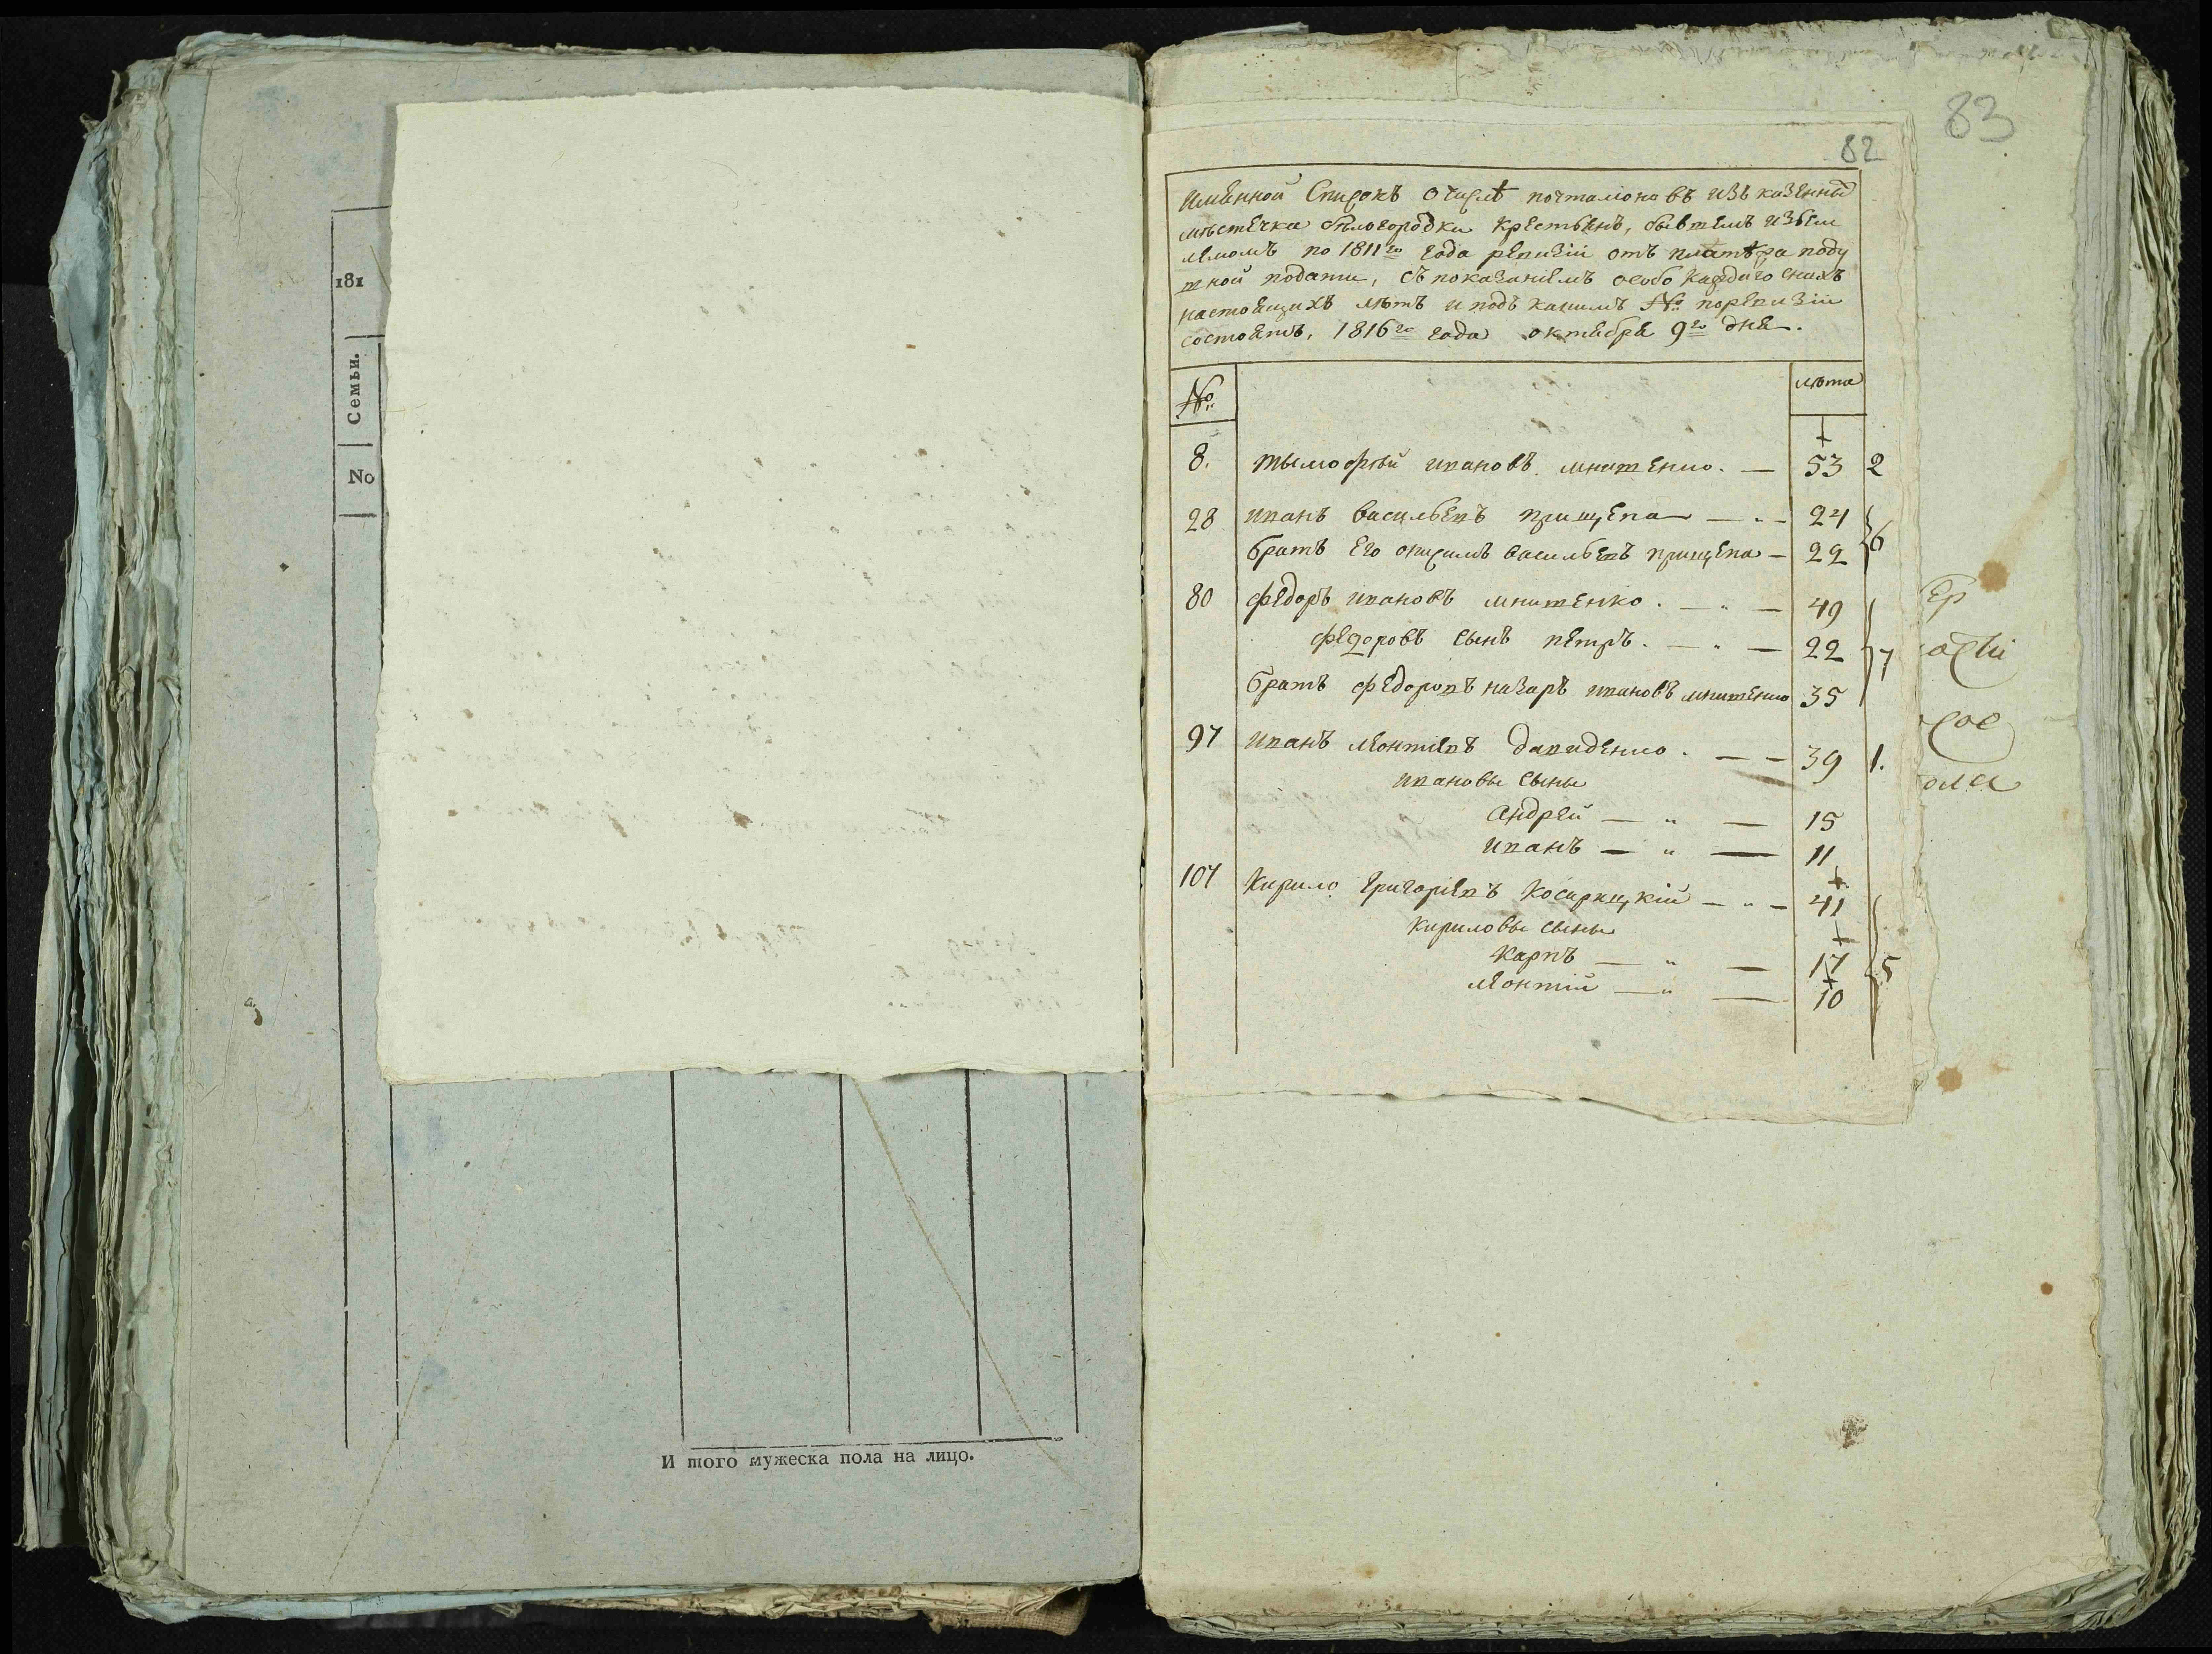 181
Семьи.
No
И того мужеска пола на лицо.
83
82
Имѣнной Списокъ очислѣ почталіоновъ изъ казенныхъ
мѣстечка бѣлогородки крестьянъ, бывшемъ изъем
лемомъ по 1811го года ревизіи отъ платежа поду
шной подати, съ показаніемъ особо каждаго снихъ
настоящихъ лѣтъ и подъ какимъ № поревизіи
состоятъ, 1816го года октября 9го дня.
№ лѣта
8. тымофѣй ивановъ мнишенко. — 53 2
28 иванъ васильевъ прищепа — " — 24
братъ его онисимъ васильевъ прищепа — 22 6
80 федоръ ивановъ мнишенко. — " — 49
федоровъ сынъ петръ. — " — 22 7
братъ федоровъ назаръ ивановъ мнишенко 35
97 иванъ леонтиевъ давиденко. — — 39 1.
ивановы сыны
андрей — " — 15
иванъ — " — 11
107 Кирило григориевъ Косаркцкій — " — 41
Кириловы сыны
Карпъ — " — 17 5
леонтій — " — 10